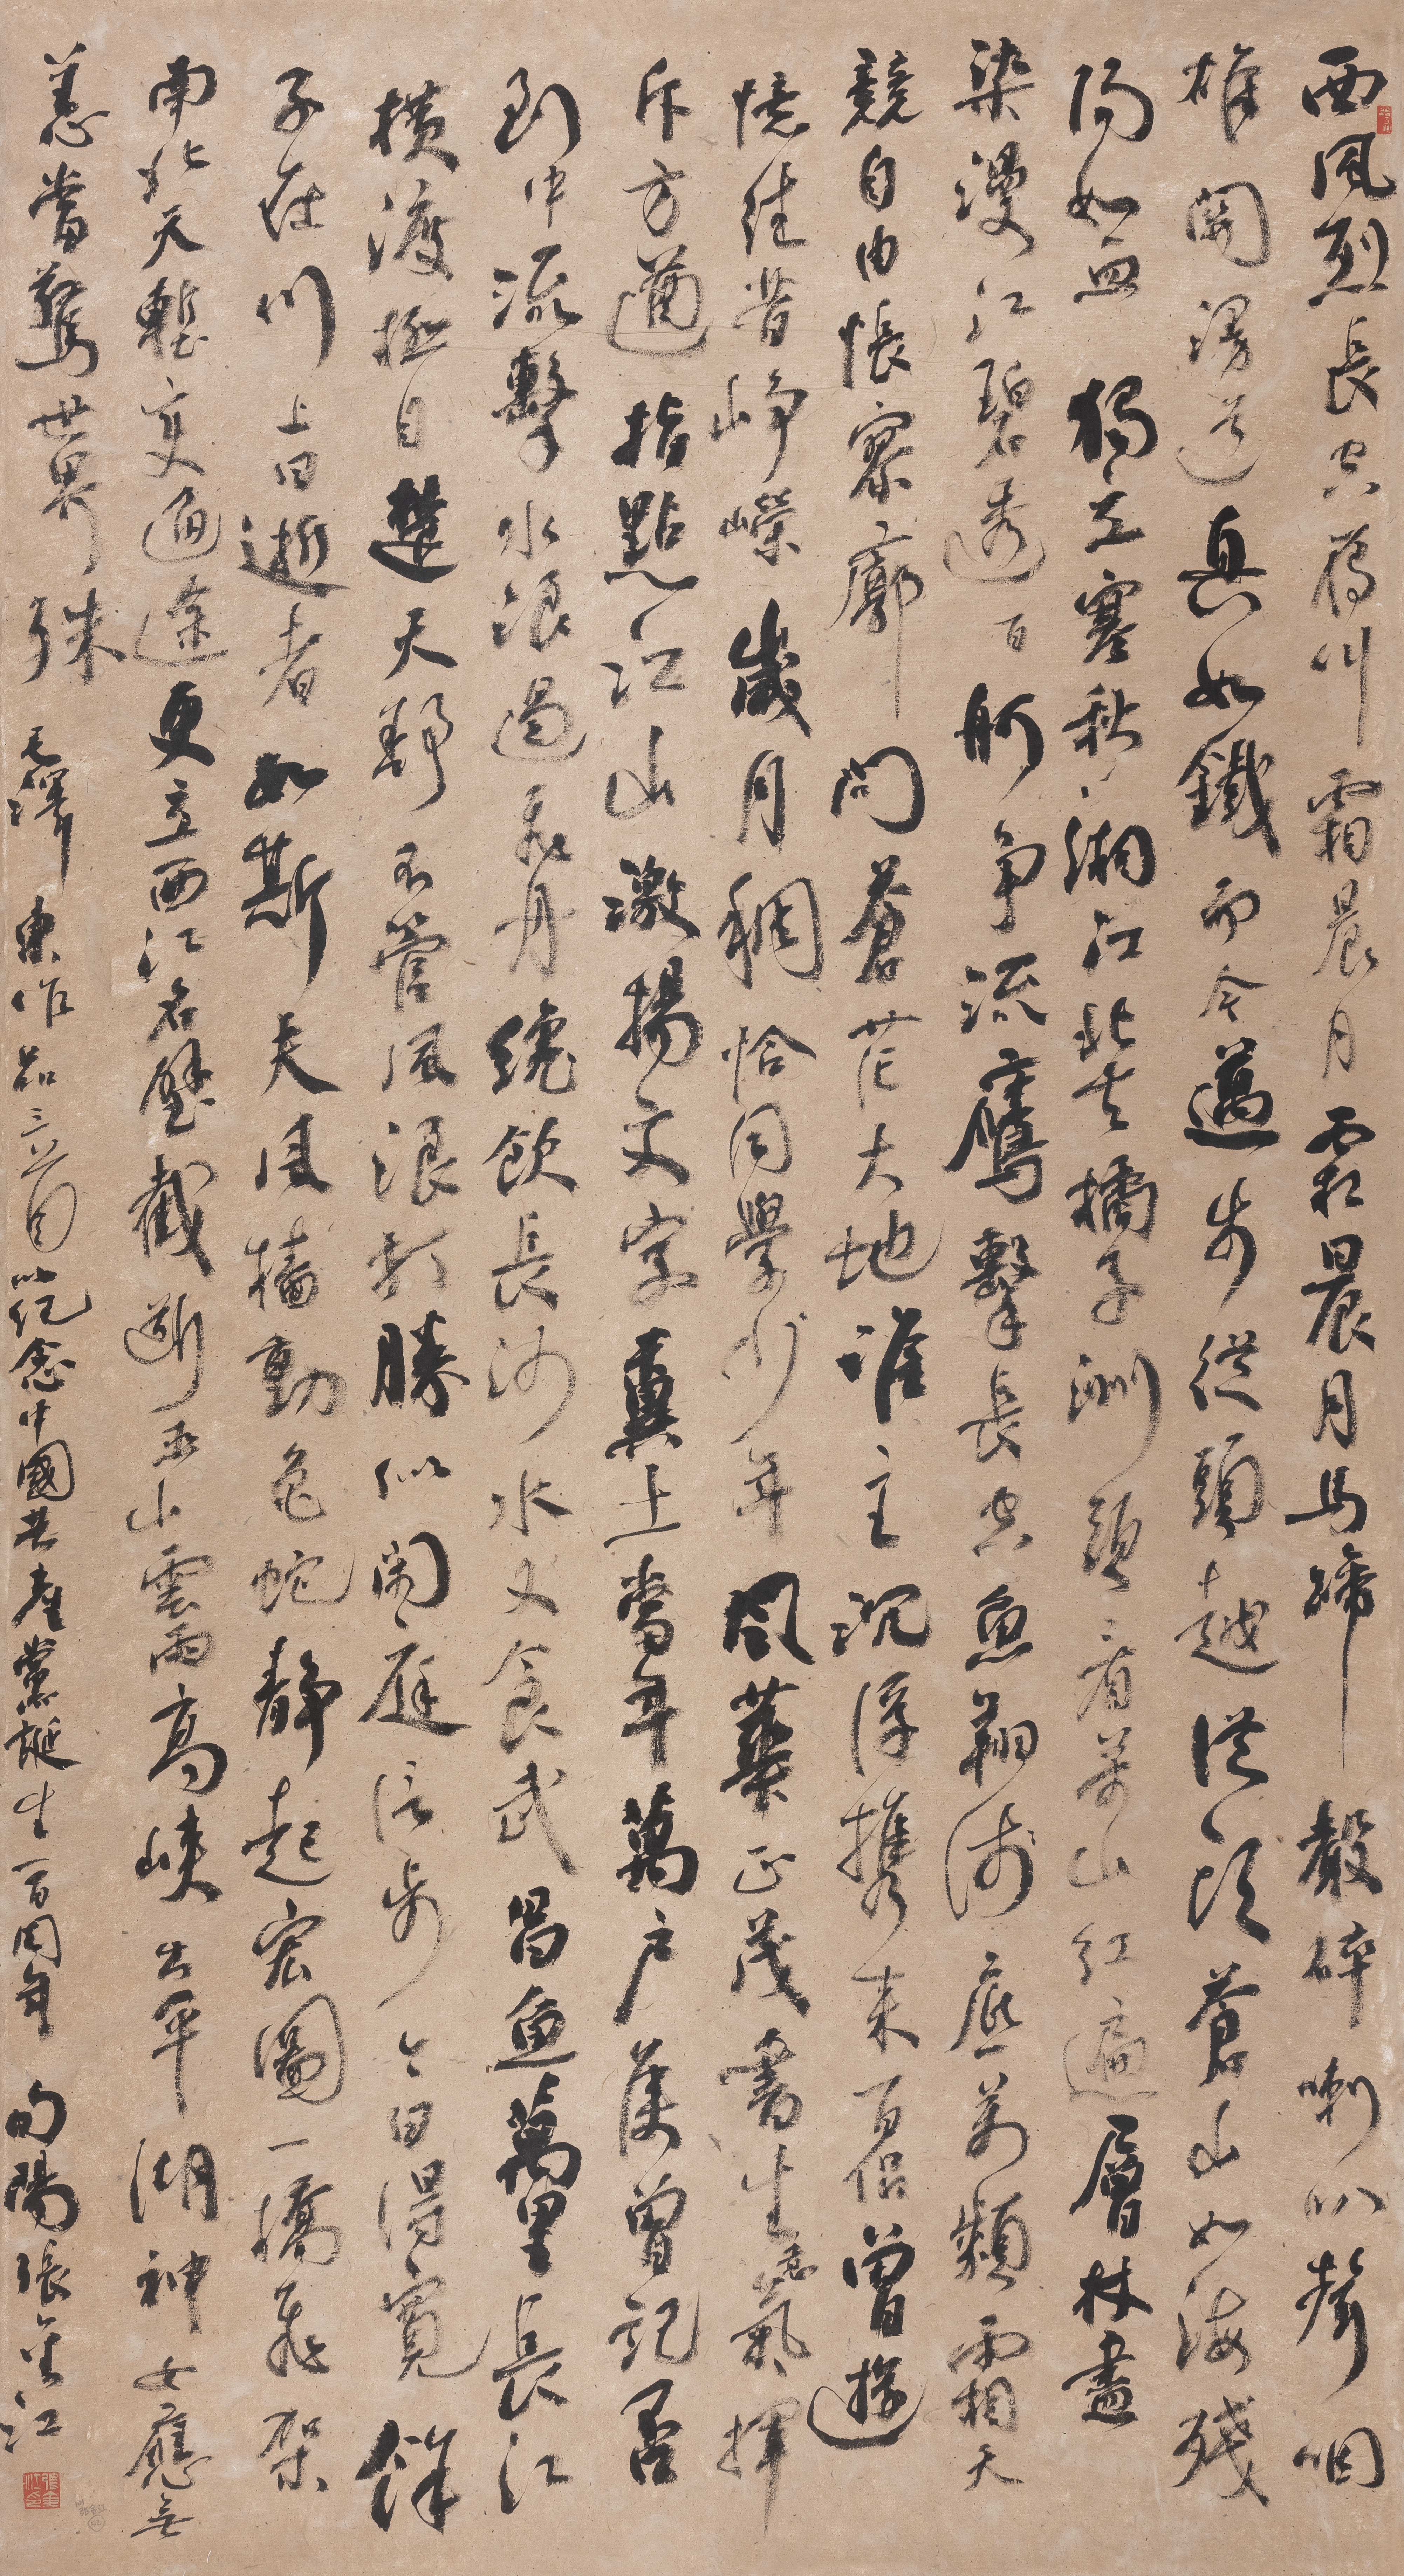 西風烈長空雁叫霜晨月霜晨月馬蹄聲碎喇叭聲咽
雄關漫道真如鐵而今邁步從頭越從頭蒼山如海殘
陽如血獨立寒秋湘江北去橘子洲頭看萬山紅遍層林盡
染漫江碧透百舸爭流鷹擊長空魚翔淺底萬類霜天
競自由悵寥廓問蒼茫大地誰主沉浮攜來百侶曾遊
憶往昔崢嶸歲月稠恰同學少年風華正茂書生意氣揮
斥方遒指點江山激揚文字糞土當年萬戶侯曾記否
到中流擊水浪遏飛舟纔飲長沙水又食武昌魚萬里長江
橫渡極目楚天舒不管風浪打勝似閒庭信步今日得寬餘
子在川上曰逝者如斯夫風檣動龜蛇靜起宏圖一橋飛架
南北天塹變通途更立西江石壁截斷巫山雲雨高峽出平湖神女應無
恙當驚世界殊 毛澤東作品三首以紀念中國共產黨誕生一百周年 旬陽張金江